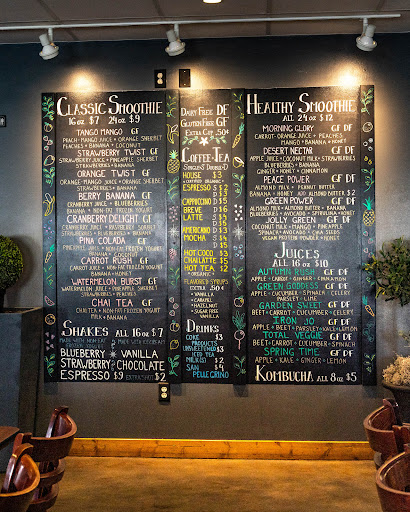 CLASSIC SMOOTHIE
16 oz $7 24 oz $9
TANGO MANGO GF
PEACH-MANGO JUICE + ORANGE SHERBET
PEACHES + BANANA + COCONUT
STRAWBERRY TWIST GF
STRAWBERRY JUICE + PINEAPPLE SHERBET
STRAWBERRIES + BANANA
ORANGE TWIST GF
ORANGE JUICE + ORANGE SHERBET
STRAWBERRIES + BANANA
BERRY BANANA GF
BANANA + HONEY
CRANBERRY DELIGHT GF
PINA COLADA GF
BANANA + COCONUT
CARROT RUSH GF
CARROT JUICE + NON-FAT FROZEN YOGURT
BANANA + HONEY
WATERMELON BURST GF
STRAWBERRIES + BANANA
CHAI TEA GF
CHAI TEA + NON-FAT FROZEN YOGURT
BANANA
SHAKES ALL 16 oz $7
BLUEBERRY • VANILLA
STRAWBERRY CHOCOLATE
ESPRESSO $9 EXTRA SHOT $2
DAIRY FREE DF
GLUTEN FREE GF
EXTRA CUP .50¢
COFFEE+TEA
HOUSE $3
ESPRESSO $2
CAPPUCCINO
BREVE
LATTE
AMERICANO
MOCHA
HOT COCO
CHAI TEA
HOT TEA
• ORGANIC •
FLAVORED SYRUPS
VANILLA
CARAMEL
HAZELNUT
SUGAR FREE
VANILLA
DRINKS
COKE PRODUCTS
UNSWEETENED ICED TEA
MILK(S) $2
SAN PELLEGRINO $4
HEALTHY SMOOTHIE
ALL 24 oz $12
MORNING GLORY GF DF
CARROT-ORANGE JUICE + PEACHES
MANGO + BANANA + HONEY
DESERT NECTAR GF DF
APPLE JUICE + COCONUT MILK + STRAWBERRIES
BLUEBERRIES + BANANA
GINGER + HONEY + CINNAMON
PEACE POWER GF DF
ALMOND MILK + PEANUT BUTTER
BANANA + HONEY ADD ALMOND BUTTER $2
GREEN POWER GF DF
ALMOND MILK + ALMOND BUTTER + BANANA
BLUEBERRIES + AVOCADO + SPIRULINA + HONEY
JOLLY GREEN GF DF
COCONUT MILK + MANGO + PINEAPPLE
SPINACH + AVOCADO + CHIA SEEDS
VEGAN PROTEIN POWDER + HONEY
JUICES
ALL 16 oz $10
AUTUMN RUSH GF DF
APPLE + CARROT + GINGER + CINNAMON
GREEN GODDESS GF DF
APPLE + CUCUMBER + SPINACH + CELERY
PARSLEY + LIME
GARDEN SWEET GF DF
BEET + CARROT + CUCUMBER + CELERY
IRON 10 GF DF
APPLE + BEET + PARSLEY + KALE + LEMON
TOTAL VEGGIE GF DF
BEET + CARROT + CUCUMBER + SPINACH
SPRING TIME GF DF
APPLE + KALE + GINGER + LEMON
KOMBUCHA ALL 8 oz $5